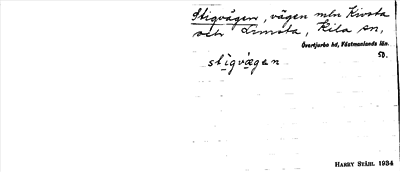 Stigvägen, vägen mln Kivsta
och Ormsta, Kila sn,
Övertjurbo hd, Västmanlands län.
50.
stigvægen
HARRY STÅHL 1934